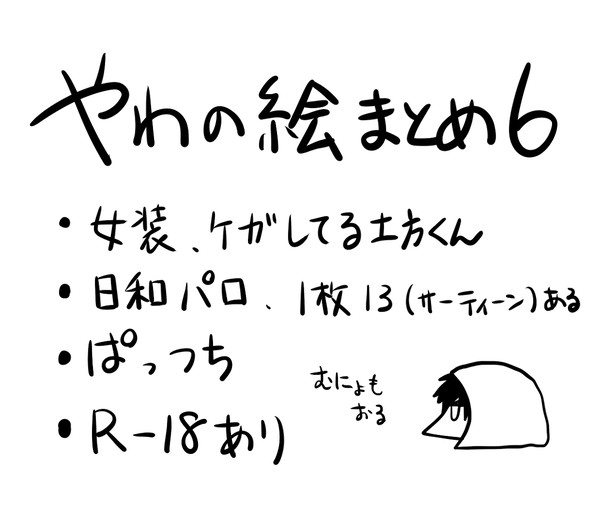 やわの絵まとめ6
・女装、ケガしてる土方くん
・日和パロ、1枚13(サーティーン)ある
・ぱっつち
・R-18あり
むにょも
おる